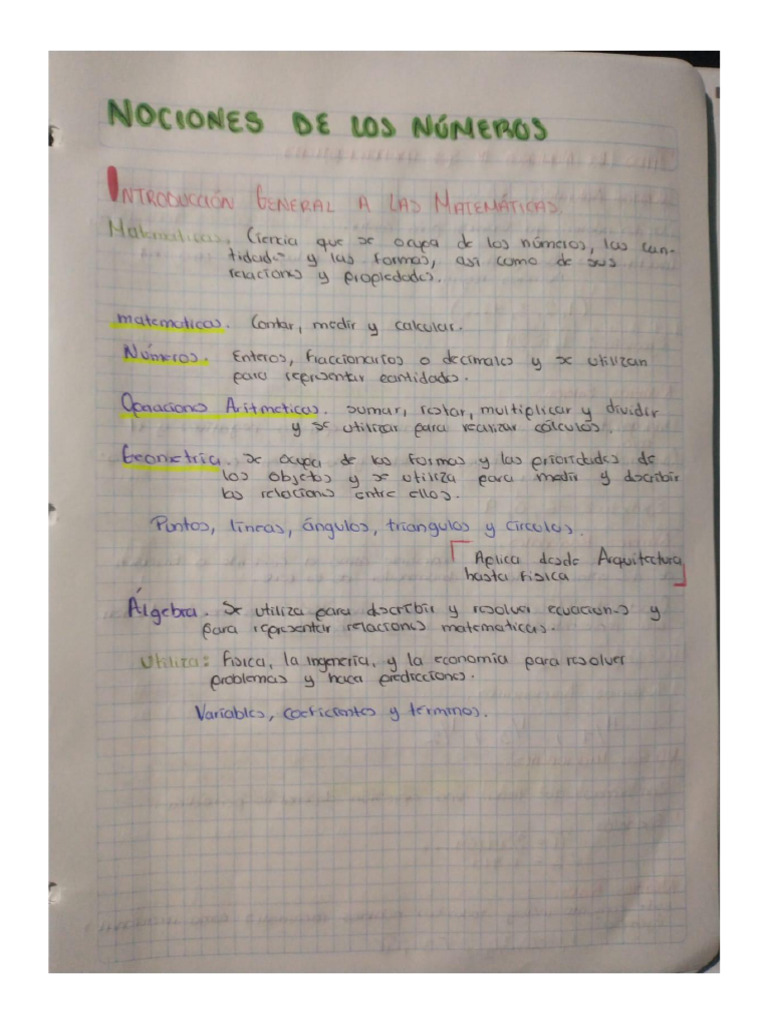 NOCIONES DE LOS NÚMEROS
INTRODUCCIÓN GENERAL A LAS MATEMÁTICAS.
Matematicas. Ciencia que se ocupa de los números, las can-
tidades y las formas, asi como de sus
relaciones y propiedades.
matematicas. Contar, medir y calcular.
Números. Enteros, fraccionarios o decimales y se utilizan
para representar cantidades.
Operaciones Aritmeticas. sumar, restar, multiplicar y dividir
y se utilizar para realizar cálculos.
Geometría. se ocupa de las formas y las prioridades de
los objetos y se utiliza para medir y describir
las relaciones entre ellos.
Puntos, líneas, ángulos, triangulos y círculos.
Aplica desde Arquitectura
hasta fisica
Álgebra. Se utiliza para describir y resolver ecuaciones y
para representar relaciones matematicas.
Utiliza: fisica, la ingeneria, y la economía para resolver
problemas y hacer predicciones.
Variables, coeficientes y términos.